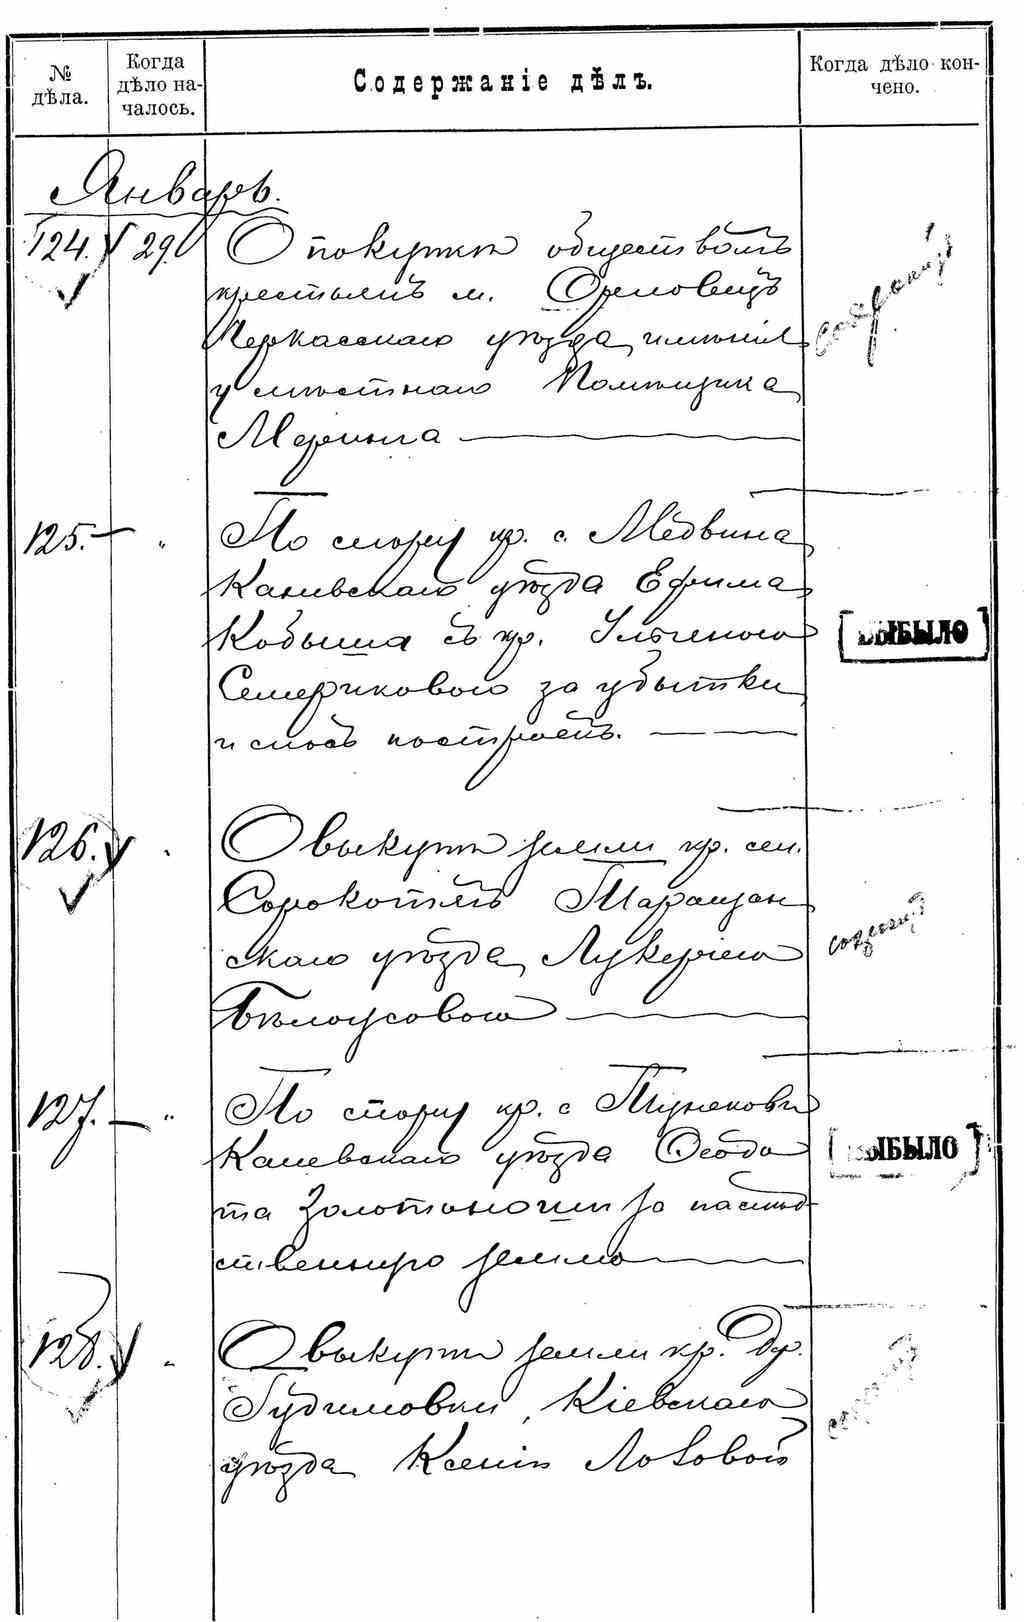 № дѣла.
Когда дѣло началось.
Содержаніе дѣлъ.
Когда дѣло кончено.
Январь.
124. 29.
О покупкѣ обществомъ
крестьянъ м. Орловецъ
Черкасскаго уѣзда, имѣнія
у мѣстнаго Помѣщика
Меринга
125. — "
По спору кр. с. Медвина
Каневскаго уѣзда Ефима
Кобыша съ кр. Ульяною
Семериковою за убытки
и сносъ построекъ.
ВЫБЫЛО
126. "
О выкупѣ земли кр. сел.
Сорокотягъ Таращан
скаго уѣзда, Лукеріею
Бѣлоусовою
127. — "
По спору кр. с.
Каневскаго уѣзда Ѳеодо
та за наслѣд-
ственную землю
ВЫБЫЛО
128. "
О выкупѣ земли кр. Др.
Гудимовки, Кіевскаго
уѣзда Ксеніи